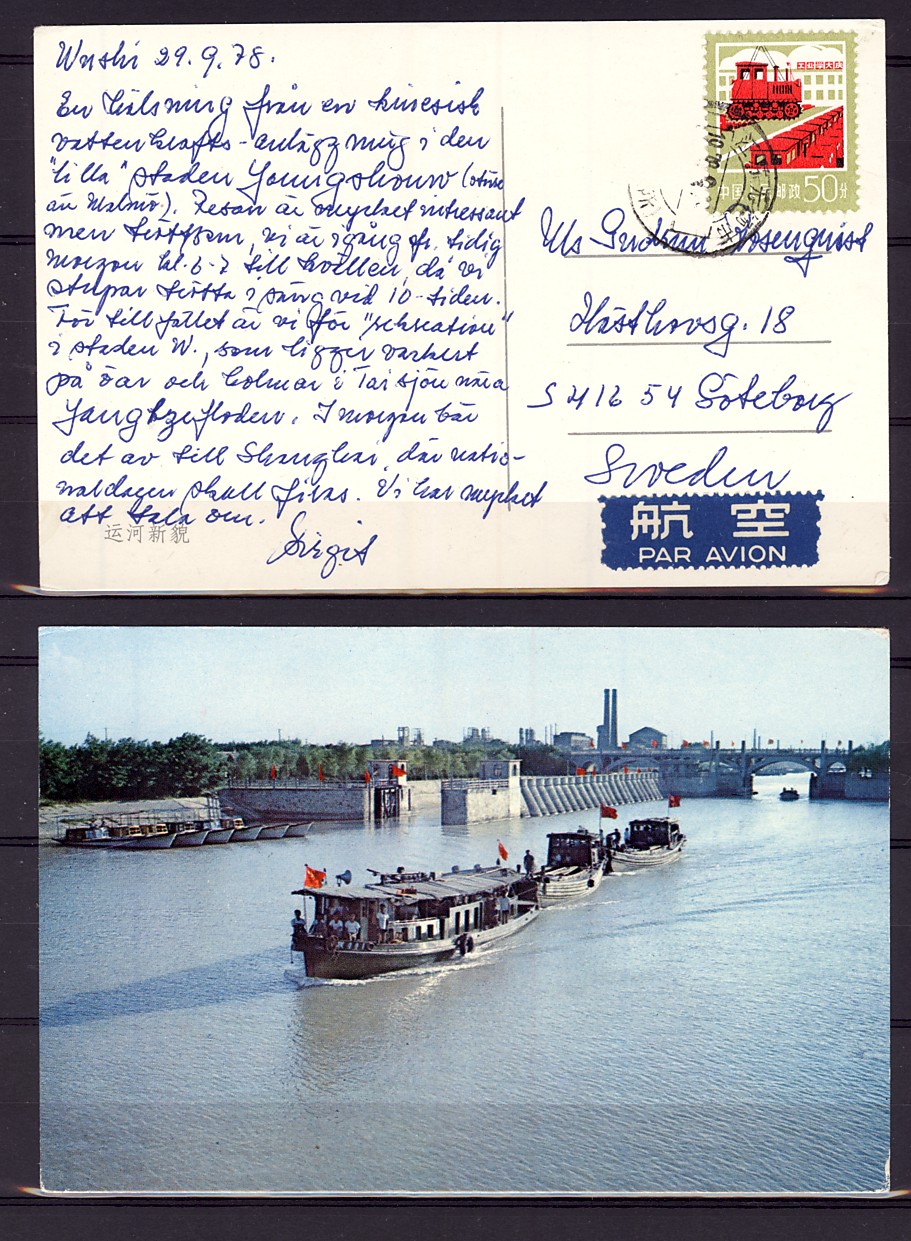 Wushi 29.9.78.
En hälsning från en kinesisk
vattenkrafts-anläggning i den
"lilla" staden Youngshouw (större
än Malmö). Resan är mycket intressant
men tröttsam, vi är igång fr. tidig
morgon kl. 6-7 till kvällen, då vi
stupar trötta i säng vid 10-tiden.
För tillfället är vi för "rekreation"
i staden W., som ligger vackert
på öar och holmar i Taisjön nära
Yangtzefloden. I morgon bär
det av till Shanghai, där natio-
naldagen skall firas. Vi har mycket
att tala om.
Birgit
运河新貌
工业学大庆
中国人民邮政 50分
Ms Gudrun Rosenquist
Hästhovsg. 18
S 416 54 Göteborg
Sweden
航空
PAR AVION